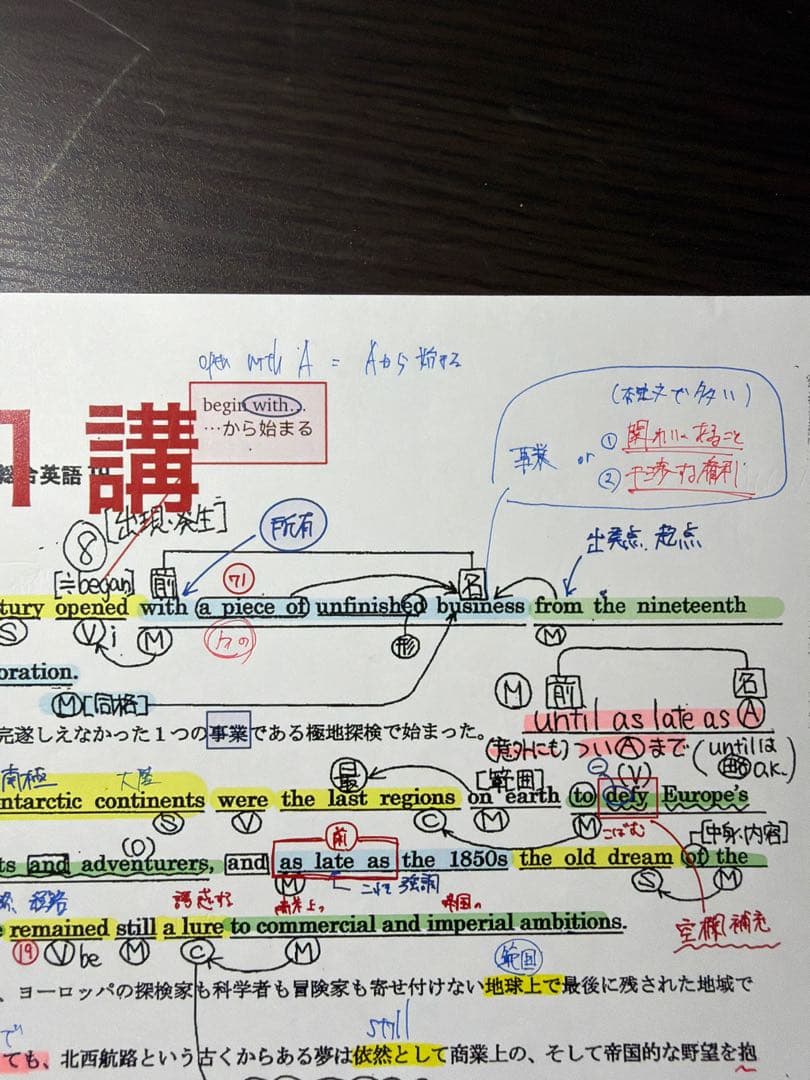 open with A = Aから始まる
begin with…
…から始まる
講
総合英語
(本文で多い)
事業 or ① 関わりのあること
② 干渉する権利
⑧ [出現・発生]
所有
出発点、起点
[≒began] 前 71 名
tury opened with a piece of unfinished business from the nineteenth
S V i M 形 M
oration.
M [同格]
M 前 名
until as late as A
完遂しえなかった1つの事業である極地探検で始まった。
(意外にも)つい A まで (untilは 略 O.K.)
南極 大陸 最 [範囲] (V)
ntarctic continents were the last regions on earth to defy Europe's
S V C M M こばむ [中身・内容]
(O) 前
ts and adventurers, and as late as the 1850s the old dream of the
M これで強調 S M
誘惑する 商業上の 帝国の
e remained still a lure to commercial and imperial ambitions.
19 V be M C M 空欄補充
範囲
、ヨーロッパの探検家も科学者も冒険家も寄せ付けない地球上で最後に残された地域で
で still
ても、北西航路という古くからある夢は依然として商業上の、そして帝国的な野望を抱